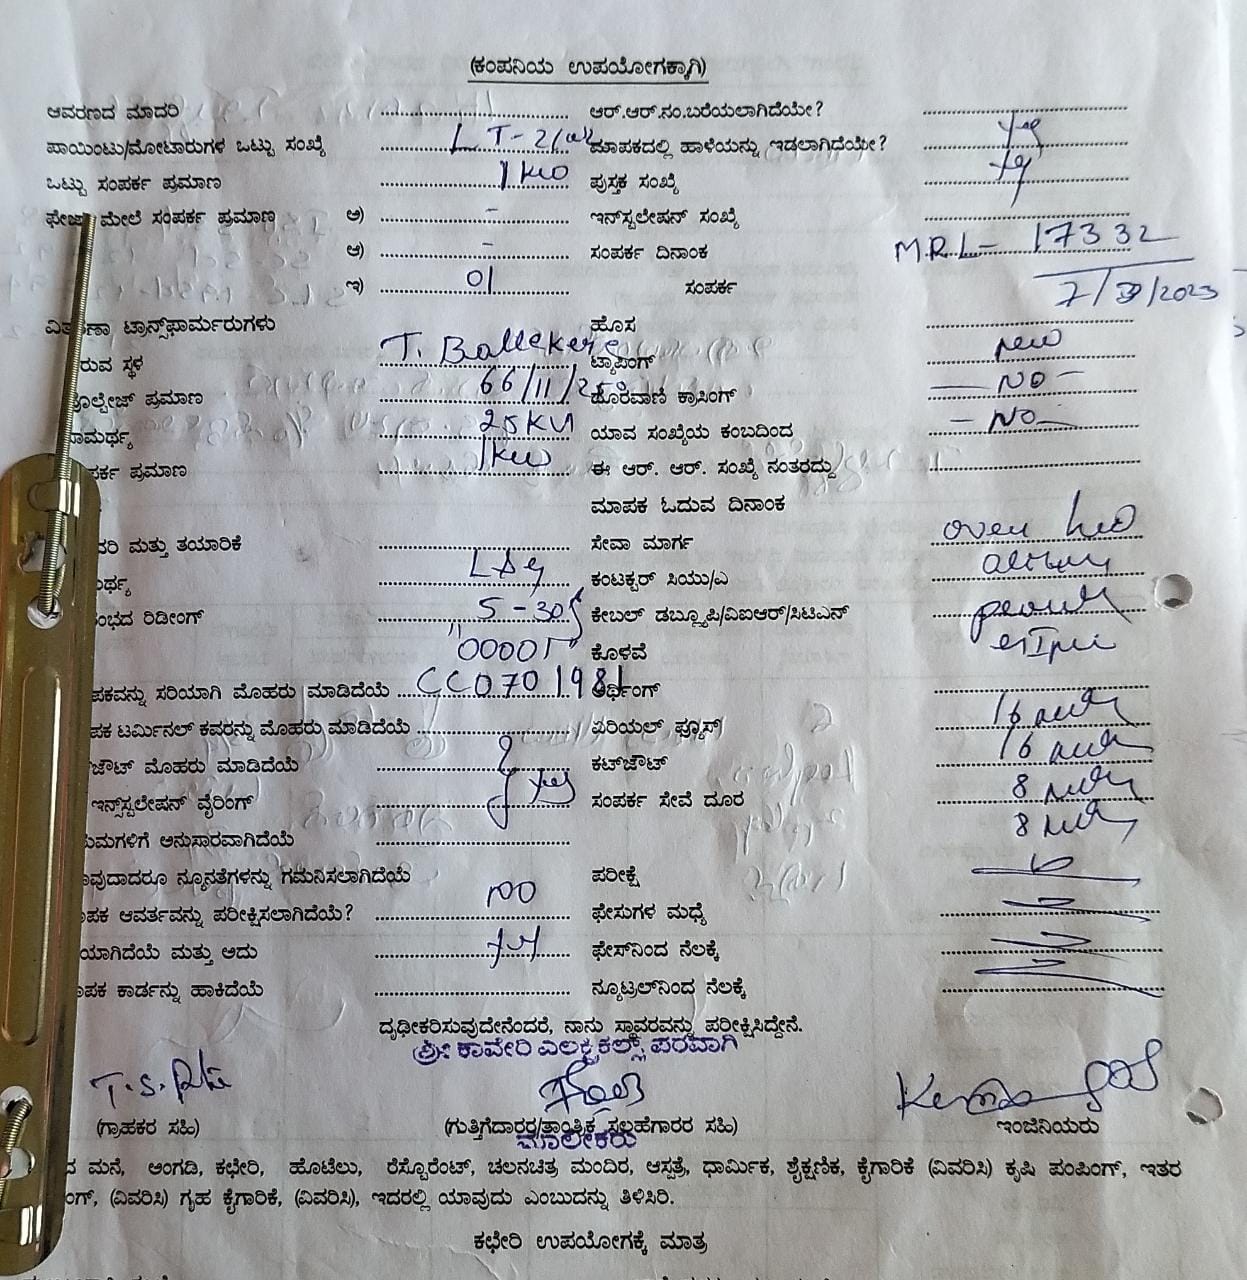 (ಕಂಪನಿಯ ಉಪಯೋಗಕ್ಕಾಗಿ)
ಆವರಣದ ಮಾದರಿ ಆರ್.ಆರ್.ನಂ.ಬರೆಯಲಾಗಿದೆಯೇ?
ಪಾಯಿಂಟು/ಮೋಟಾರುಗಳ ಒಟ್ಟು ಸಂಖ್ಯೆ LT-2(a) ಮಾಪಕದಲ್ಲಿ ಹಾಳೆಯನ್ನು ಇಡಲಾಗಿದೆಯೇ? Yes
ಒಟ್ಟು ಸಂಪರ್ಕ ಪ್ರಮಾಣ 1 KW ಪುಸ್ತಕ ಸಂಖ್ಯೆ Yes
ಫೇಜಾ ಮೇಲೆ ಸಂಪರ್ಕ ಪ್ರಮಾಣ ಅ) - ಇನ್‌ಸ್ಟಲೇಷನ್ ಸಂಖ್ಯೆ
ಆ) - ಸಂಪರ್ಕ ದಿನಾಂಕ M.R.L- 17332
ಇ) 01 ಸಂಪರ್ಕ 7/3/2023
ವಿತರಣಾ ಟ್ರಾನ್ಸ್‌ಫಾರ್ಮರುಗಳು ಹೊಸ
ರುವ ಸ್ಥಳ T. Ballekere ಟ್ಯಾಪಿಂಗ್ new
ವೋಲ್ಟೇಜ್ ಪ್ರಮಾಣ 66/11/ ಹೊರೆವಾಣಿ ಕ್ರಾಸಿಂಗ್ - NO -
ಸಾಮರ್ಥ್ಯ 25KVA ಯಾವ ಸಂಖ್ಯೆಯ ಕಂಬದಿಂದ - NO -
ಪರ್ಕ ಪ್ರಮಾಣ 1KW ಈ ಆರ್. ಆರ್. ಸಂಖ್ಯೆ ನಂತರದ್ದು
ಮಾಪಕ ಓದುವ ದಿನಾಂಕ
ದರಿ ಮತ್ತು ತಯಾರಿಕೆ ಸೇವಾ ಮಾರ್ಗ over
ರ್ಥ್ಯ L&G ಕಂಟಕ್ಟರ್ ಸಿಯು/ಎ
ಂಭದ ರಿಡೀಂಗ್ 5-30 ಕೇಬಲ್ ಡಬ್ಲ್ಯೂಪಿ/ವಿಐಆರ್/ಸಿಟಿಎಸ್
00001 ಕೊಳವೆ
ಪಕವನ್ನು ಸರಿಯಾಗಿ ಮೊಹರು ಮಾಡಿದೆಯೆ CC0701981 ಅರ್ಥಿಂಗ್
ಪಕ ಟರ್ಮಿನಲ್ ಕವರನ್ನು ಮೊಹರು ಮಾಡಿದೆಯೆ ಏರಿಯಲ್ ಪ್ಯೂಸ್/ 16
ಜೌಟ್ ಮೊಹರು ಮಾಡಿದೆಯೆ ಕಟ್‌ಜೌಟ್ 16
ಇನ್‌ಸ್ಟಲೇಷನ್ ವೈರಿಂಗ್ Yes ಸಂಪರ್ಕ ಸೇವೆ ದೂರ 8
ಯಮಗಳಿಗೆ ಅನುಸಾರವಾಗಿದೆಯೆ 8
ಾವುದಾದರೂ ನ್ಯೂನತೆಗಳನ್ನು ಗಮನಿಸಲಾಗಿದೆಯೆ ಪರೀಕ್ಷೆ
ಾಪಕ ಆವರ್ತವನ್ನು ಪರೀಕ್ಷಿಸಲಾಗಿದೆಯೆ? NO ಫೇಸುಗಳ ಮಧ್ಯೆ
ಯಾಗಿದೆಯೆ ಮತ್ತು ಅದು ಫೇಸ್‌ನಿಂದ ನೆಲಕ್ಕೆ
ಾಪಕ ಕಾರ್ಡನ್ನು ಹಾಕಿದೆಯೆ ನ್ಯೂಟ್ರಲ್‌ನಿಂದ ನೆಲಕ್ಕೆ
ದೃಢೀಕರಿಸುವುದೇನೆಂದರೆ, ನಾನು ಸ್ಥಾವರವನ್ನು ಪರೀಕ್ಷಿಸಿದ್ದೇನೆ.
ಶ್ರೀ ಕಾವೇರಿ ಎಲಕ್ಟ್ರಿಕಲ್ಸ್ ಪರವಾಗಿ
(ಗ್ರಾಹಕರ ಸಹಿ) (ಗುತ್ತಿಗೆದಾರರ/ತಾಂತ್ರಿಕ ಸಲಹೆಗಾರರ ಸಹಿ) ಇಂಜಿನಿಯರು
ಮಾಲೀಕರು
ದ ಮನೆ, ಅಂಗಡಿ, ಕಛೇರಿ, ಹೊಟೆಲು, ರೆಸ್ಟೊರೆಂಟ್, ಚಲನಚಿತ್ರ ಮಂದಿರ, ಆಸ್ಪತ್ರೆ, ಧಾರ್ಮಿಕ, ಶೈಕ್ಷಣಿಕ, ಕೈಗಾರಿಕೆ (ವಿವರಿಸಿ) ಕೃಷಿ ಪಂಪಿಂಗ್, ಇತರ
ಂಗ್, (ವಿವರಿಸಿ) ಗೃಹ ಕೈಗಾರಿಕೆ, (ವಿವರಿಸಿ), ಇದರಲ್ಲಿ ಯಾವುದು ಎಂಬುದನ್ನು ತಿಳಿಸಿರಿ.
ಕಛೇರಿ ಉಪಯೋಗಕ್ಕೆ ಮಾತ್ರ